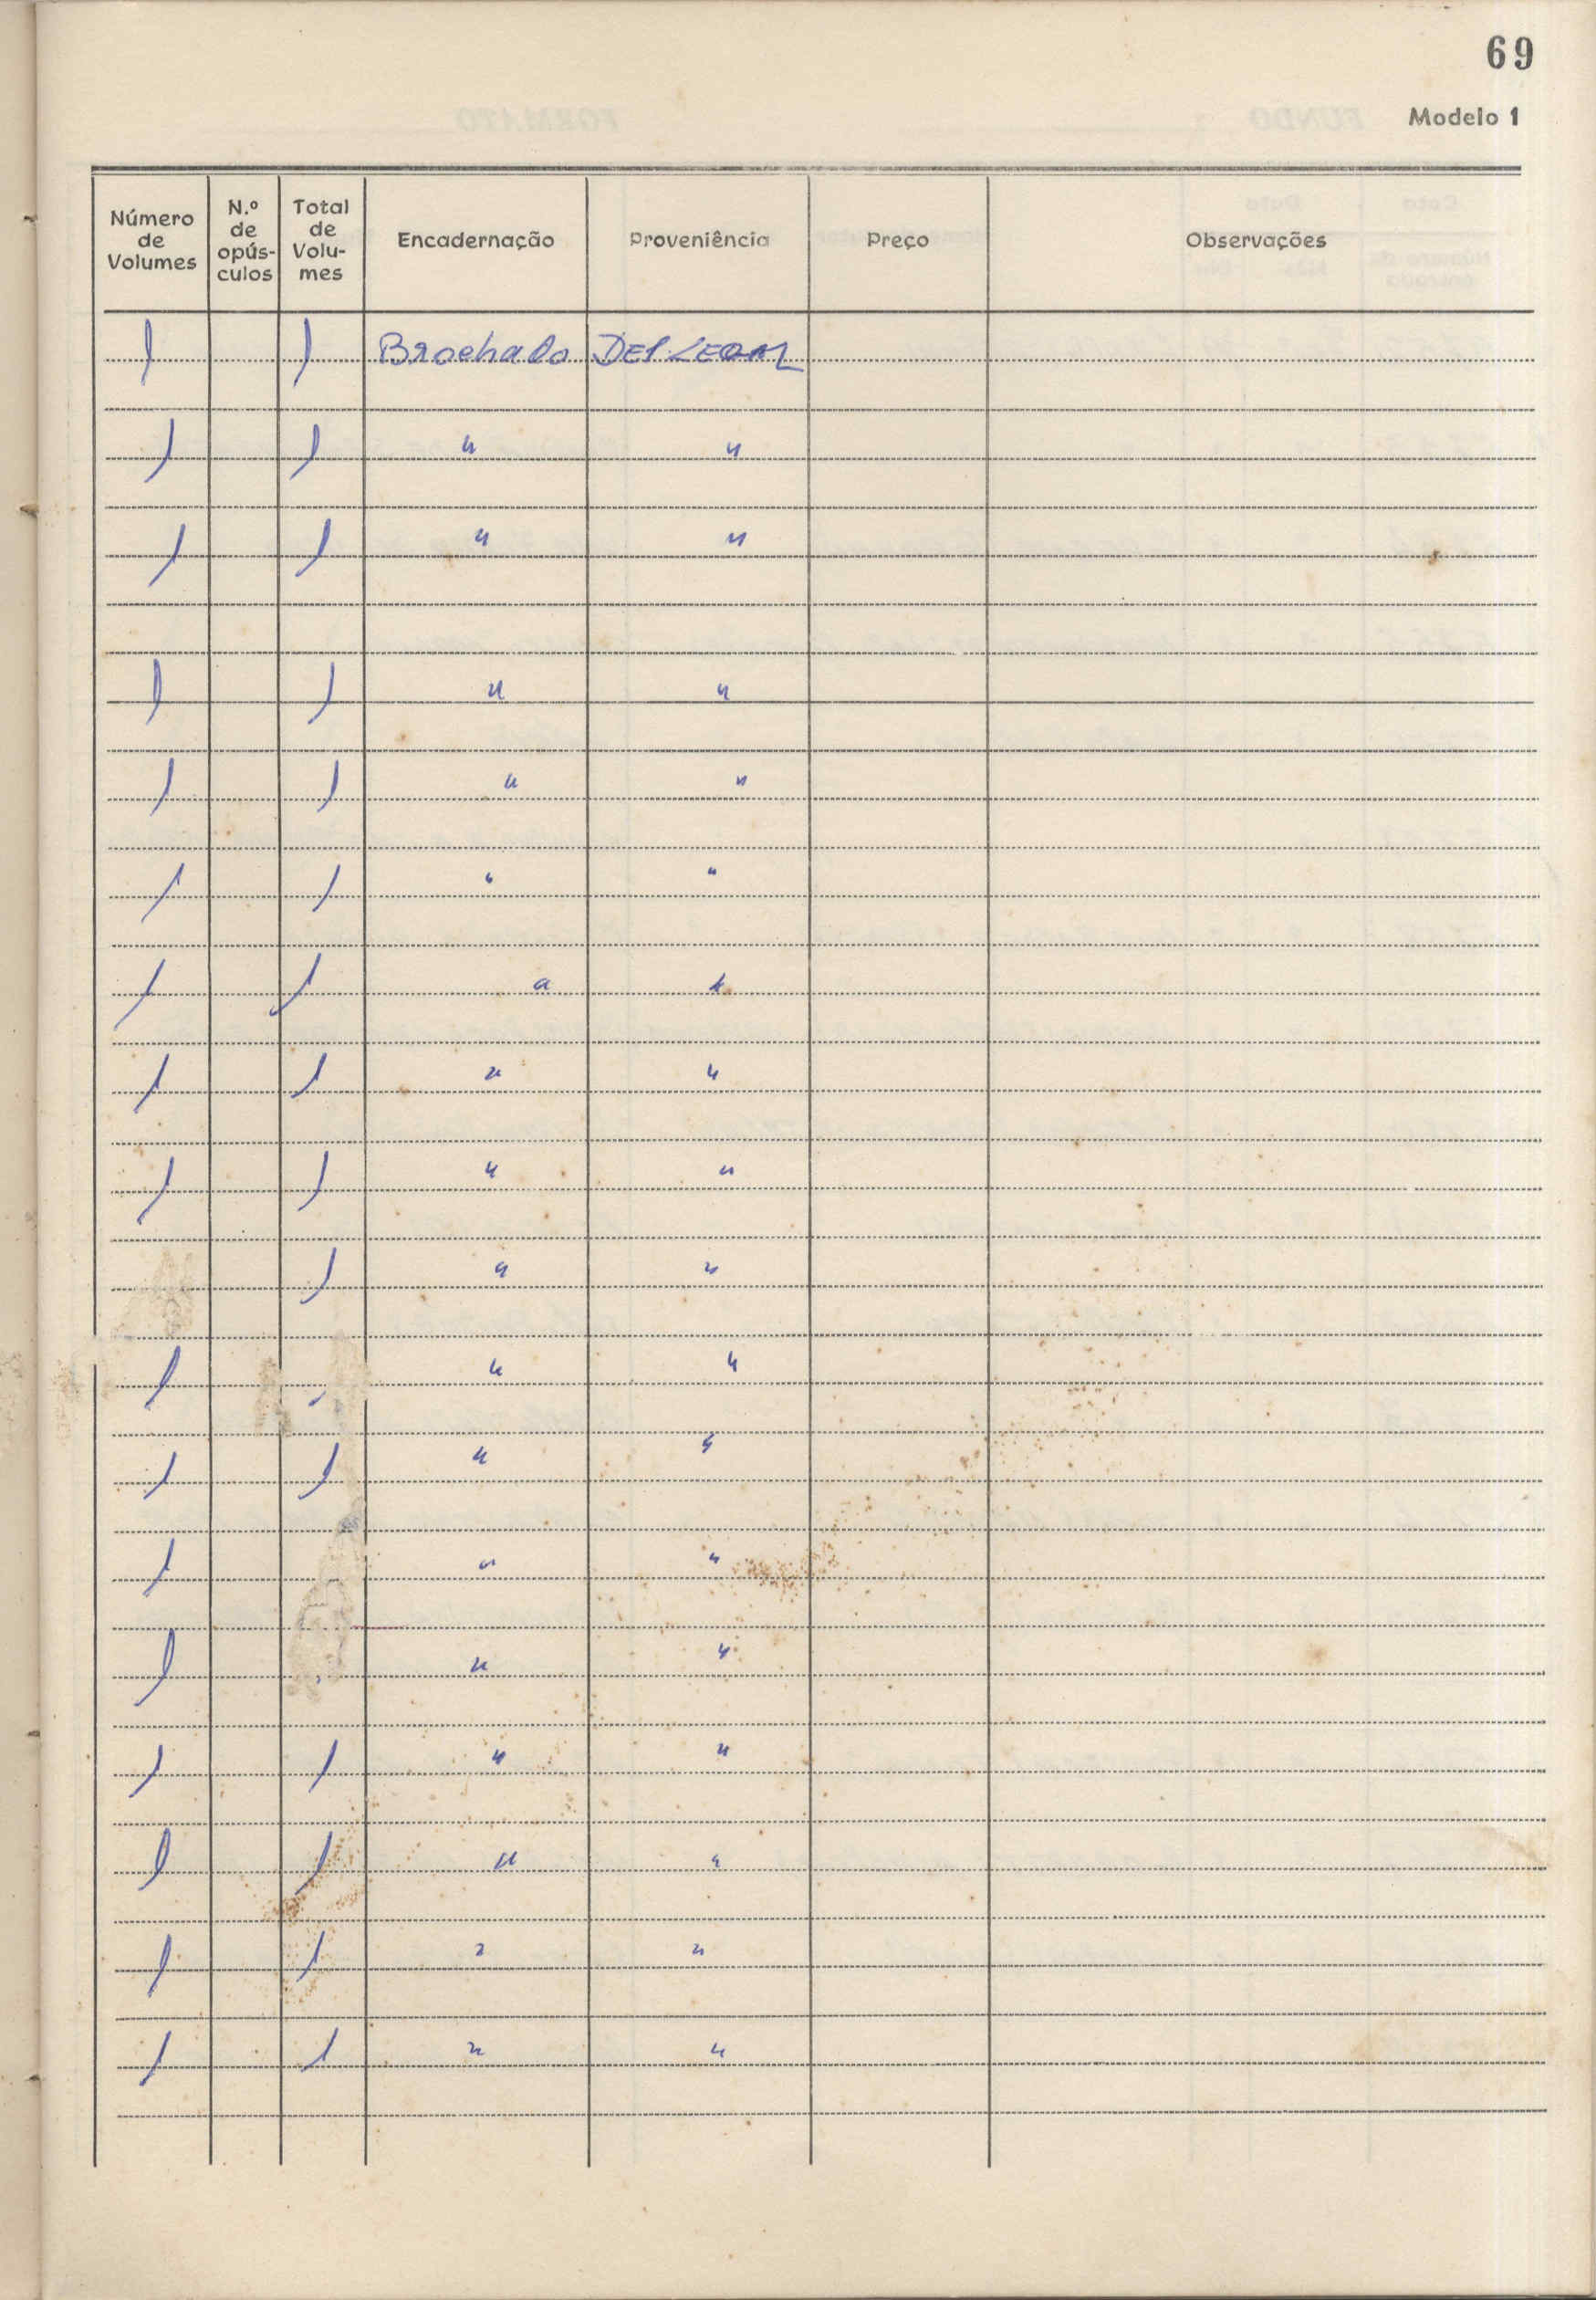 69
Modelo 1
Número de Volumes | N.º de opús-culos | Total de Volu-mes | Encadernação | Proveniência | Preço | Observações
1 | | 1 | Brochado | DEP. LEGAL
1 | | 1 | " | "
1 | | 1 | " | "
1 | | 1 | " | "
1 | | 1 | " | "
1 | | 1 | " | "
1 | | 1 | " | "
1 | | 1 | " | "
1 | | 1 | " | "
| | 1 | " | "
1 | | | " | "
1 | | 1 | " | "
1 | | | " | "
1 | | | " | "
1 | | 1 | " | "
1 | | 1 | " | "
1 | | 1 | " | "
1 | | 1 | " | "